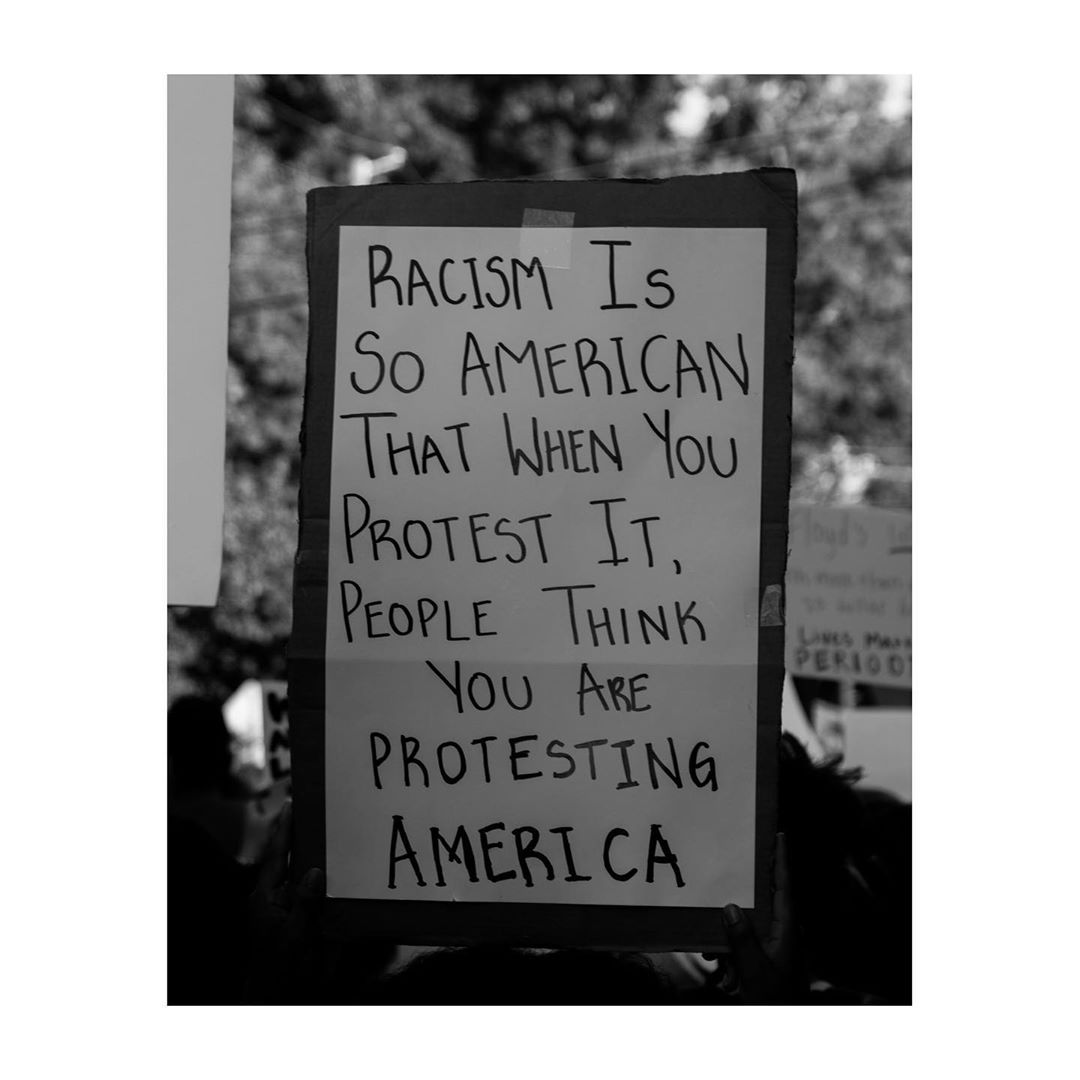 RACISM IS
SO AMERICAN
THAT WHEN YOU
PROTEST IT,
PEOPLE THINK
YOU ARE
PROTESTING
AMERICA
Floyd's
LIVES
PERIOD